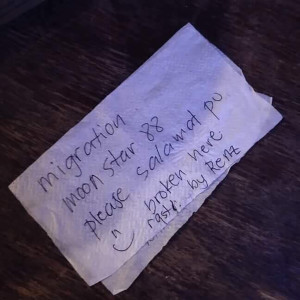 migration
moon star 88
please salamat po
broken here
by Renz